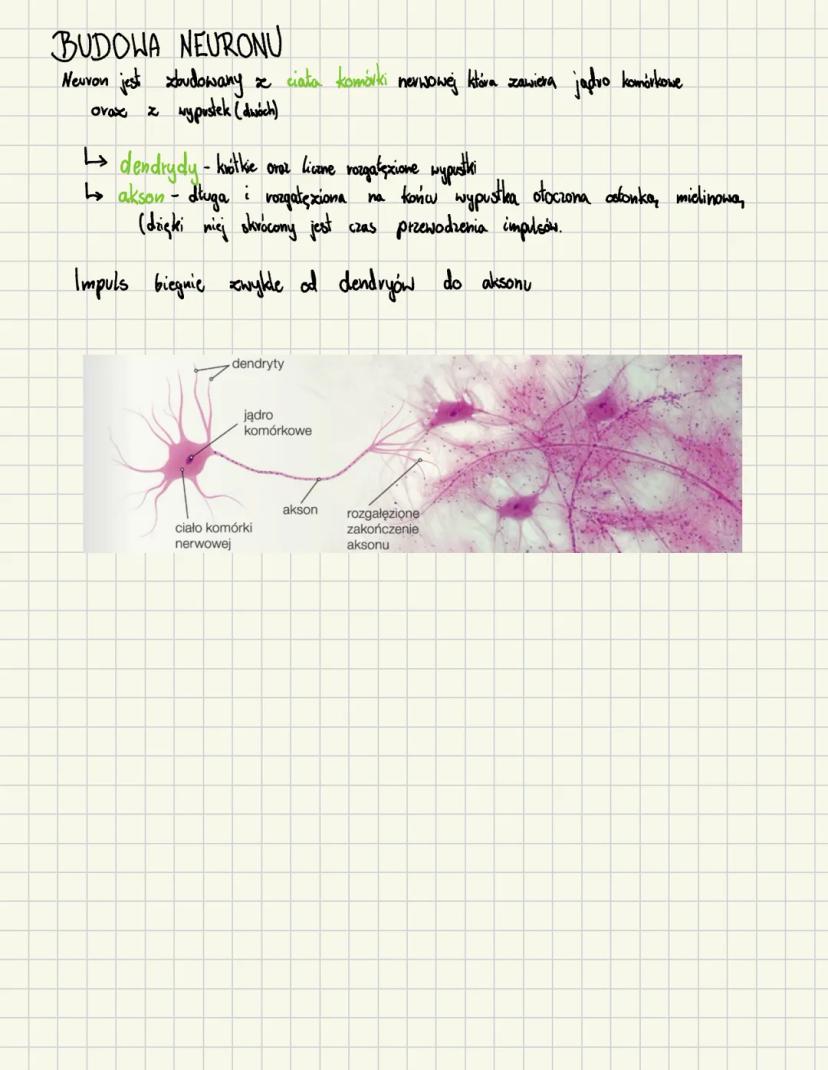 BUDOWA NEURONU
Neuron jest zbudowany z ciała komórki nerwowej która zawiera jądro komórkowe
oraz z wypustek (dwóch)
↳ dendrydy - krótkie oraz liczne rozgałęzione wypustki
↳ akson - długa i rozgałęziona na końcu wypustka otoczona osłonką mielinową
(dzięki niej skrócony jest czas przewodzenia impulsów.
Impuls biegnie zwykle od dendryów do aksonu
dendryty
jądro
komórkowe
akson
rozgałęzione
zakończenie
aksonu
ciało komórki
nerwowej